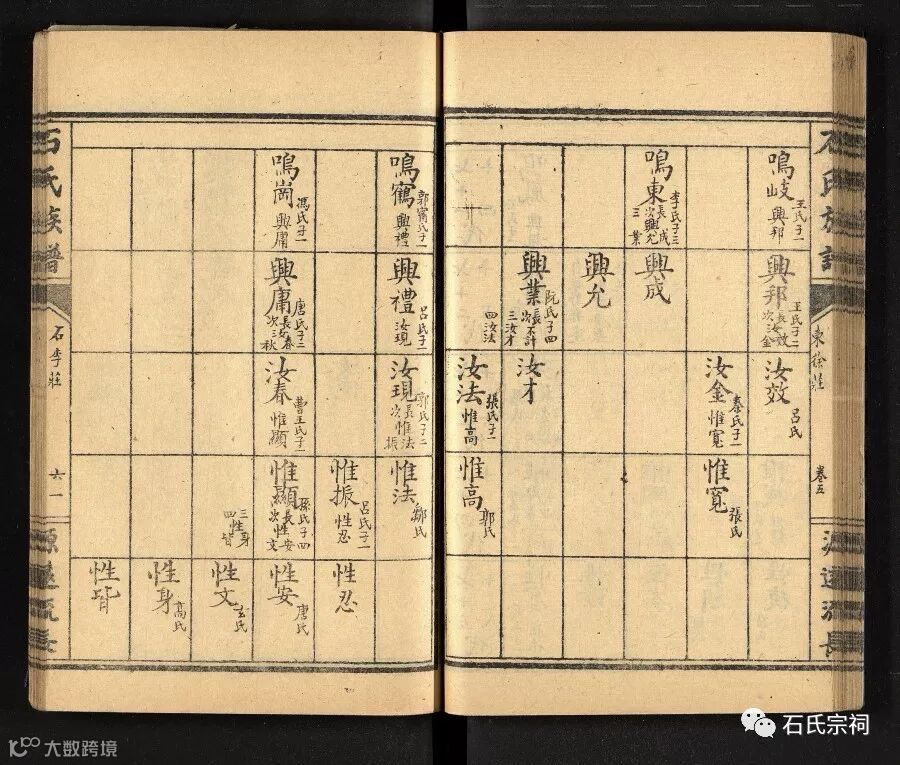 石氏族譜
東徐莊
卷五
源遠流長
鳴岐
王氏子一
興邦
鳴東
李氏子三
長成
次興允
三業
興邦
王氏子二
長汝效
次汝金
興成
興允
興業
阮氏子四
長不計
次
三汝才
四汝法
汝效
呂氏
汝金
秦氏子一
惟寬
汝才
汝法
張氏子一
惟高
惟寬
張氏
惟高
郭氏
鳴鶴
郭甯氏子一
興禮
鳴崗
馮氏子一
興庸
興禮
呂氏子一
汝現
興庸
唐氏子二
長汝春
次三秋
汝現
郭氏子二
長惟法
次振
汝春
曹王氏子一
惟顯
惟法
鄭氏
惟振
呂氏子一
性忍
惟顯
孫氏子四
長性安
次文
三性身
四皆
性忍
性安
唐氏
性文
玄氏
性身
高氏
性皆
石氏族譜
石李莊
六一
源遠流長
石氏宗祠
大数跨境